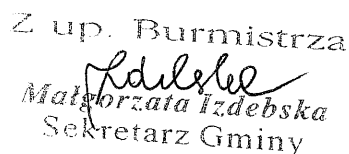 Z up. Burmistrza
Małgorzata Izdebska
Sekretarz Gminy